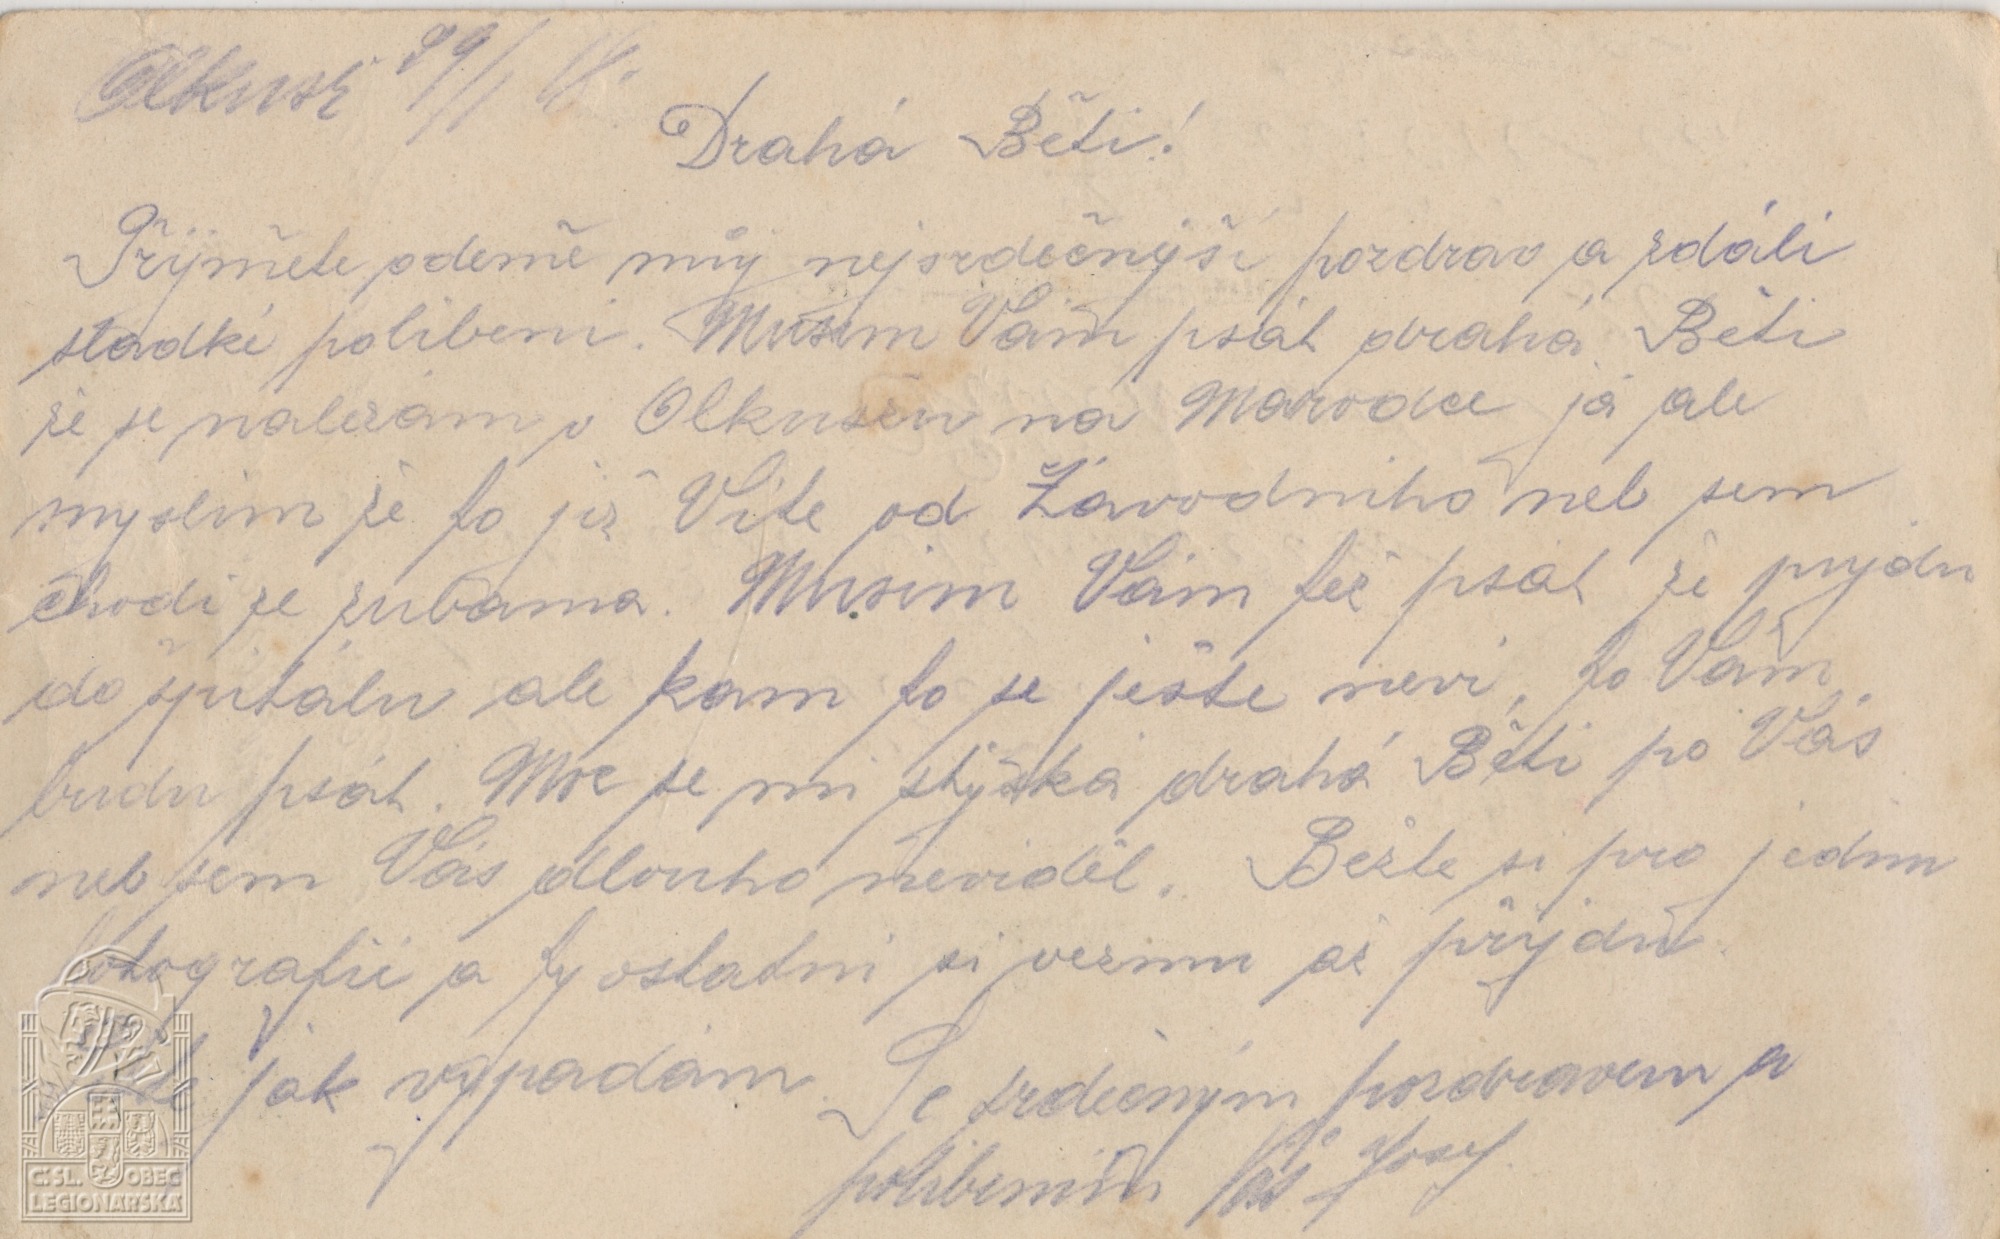 Olkusz 29/1 18.
Drahá Běti!
Přijměte odemě můj nejsrdečnějši pozdrav a zdáli
sladké polibeni. Musim Vám psát drahá Běti
že se nalezám v Olkuszu na Marodce já ale
myslim že to již Víte od Závodniho neb sem
chodi ze zubama. Musim Vám též psát že pujdu
do špitálu ale kam to se ještě nevi, to Vám
budu psát. Moc se mi stýzká drahá Běti po Vás
neb sem Vás dlouho neviděl. Běžte si pro jednu
fotografii a ty ostatni si vezmu až přijdu.
jak vypadám. Se srdečným pozdravem a
polibenim Váš Josef
Č.SL. OBEC
LEGIONÁŘSKÁ